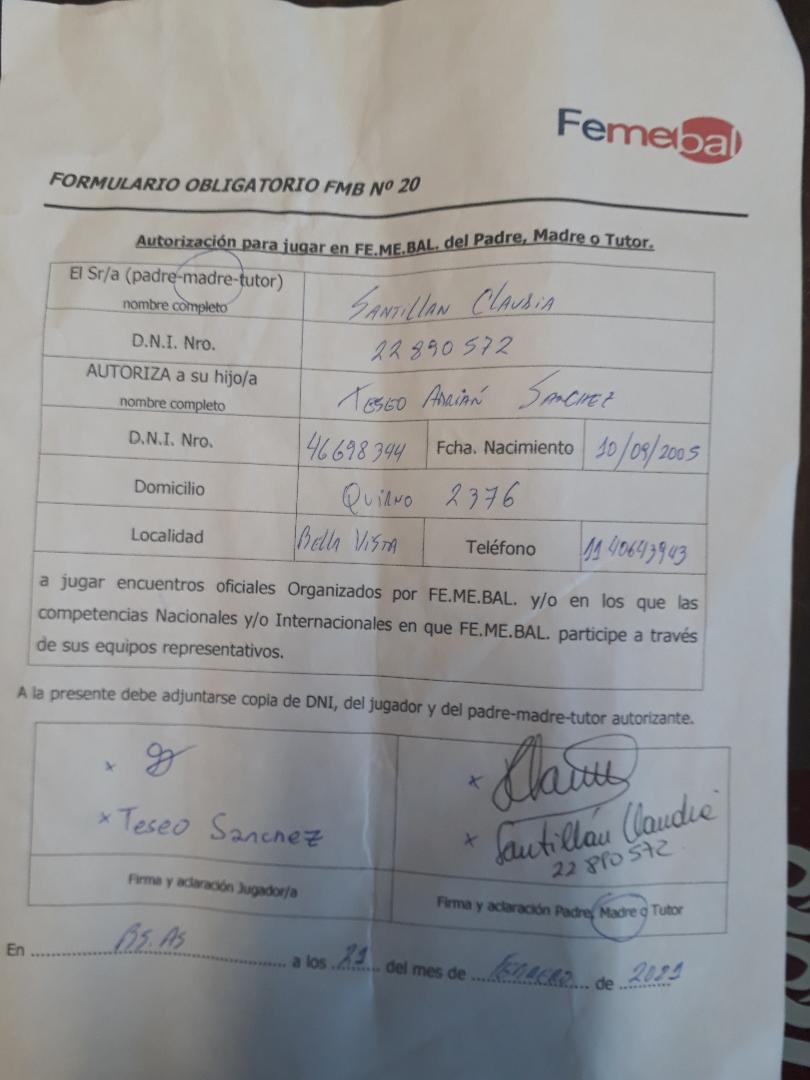 Femebal
FORMULARIO OBLIGATORIO FMB Nº 20
Autorización para jugar en FE.ME.BAL. del Padre, Madre o Tutor.
El Sr/a (padre-madre-tutor) nombre completo SANTILLAN CLAUDIA
D.N.I. Nro. 22 890 572
AUTORIZA a su hijo/a nombre completo TESEO ADRIÁN SANCHEZ
D.N.I. Nro. 46698344 Fcha. Nacimiento 10/09/2005
Domicilio 2376
Localidad BELLA VISTA Teléfono 1140643943
a jugar encuentros oficiales Organizados por FE.ME.BAL. y/o en los que las
competencias Nacionales y/o Internacionales en que FE.ME.BAL. participe a través
de sus equipos representativos.
A la presente debe adjuntarse copia de DNI, del jugador y del padre-madre-tutor autorizante.
x x
x Teseo Sanchez x Santillán Claudia
22 890 572
Firma y aclaración Jugador/a Firma y aclaración Padre, Madre o Tutor
En BS. AS a los 21 del mes de FEBRERO de 2021